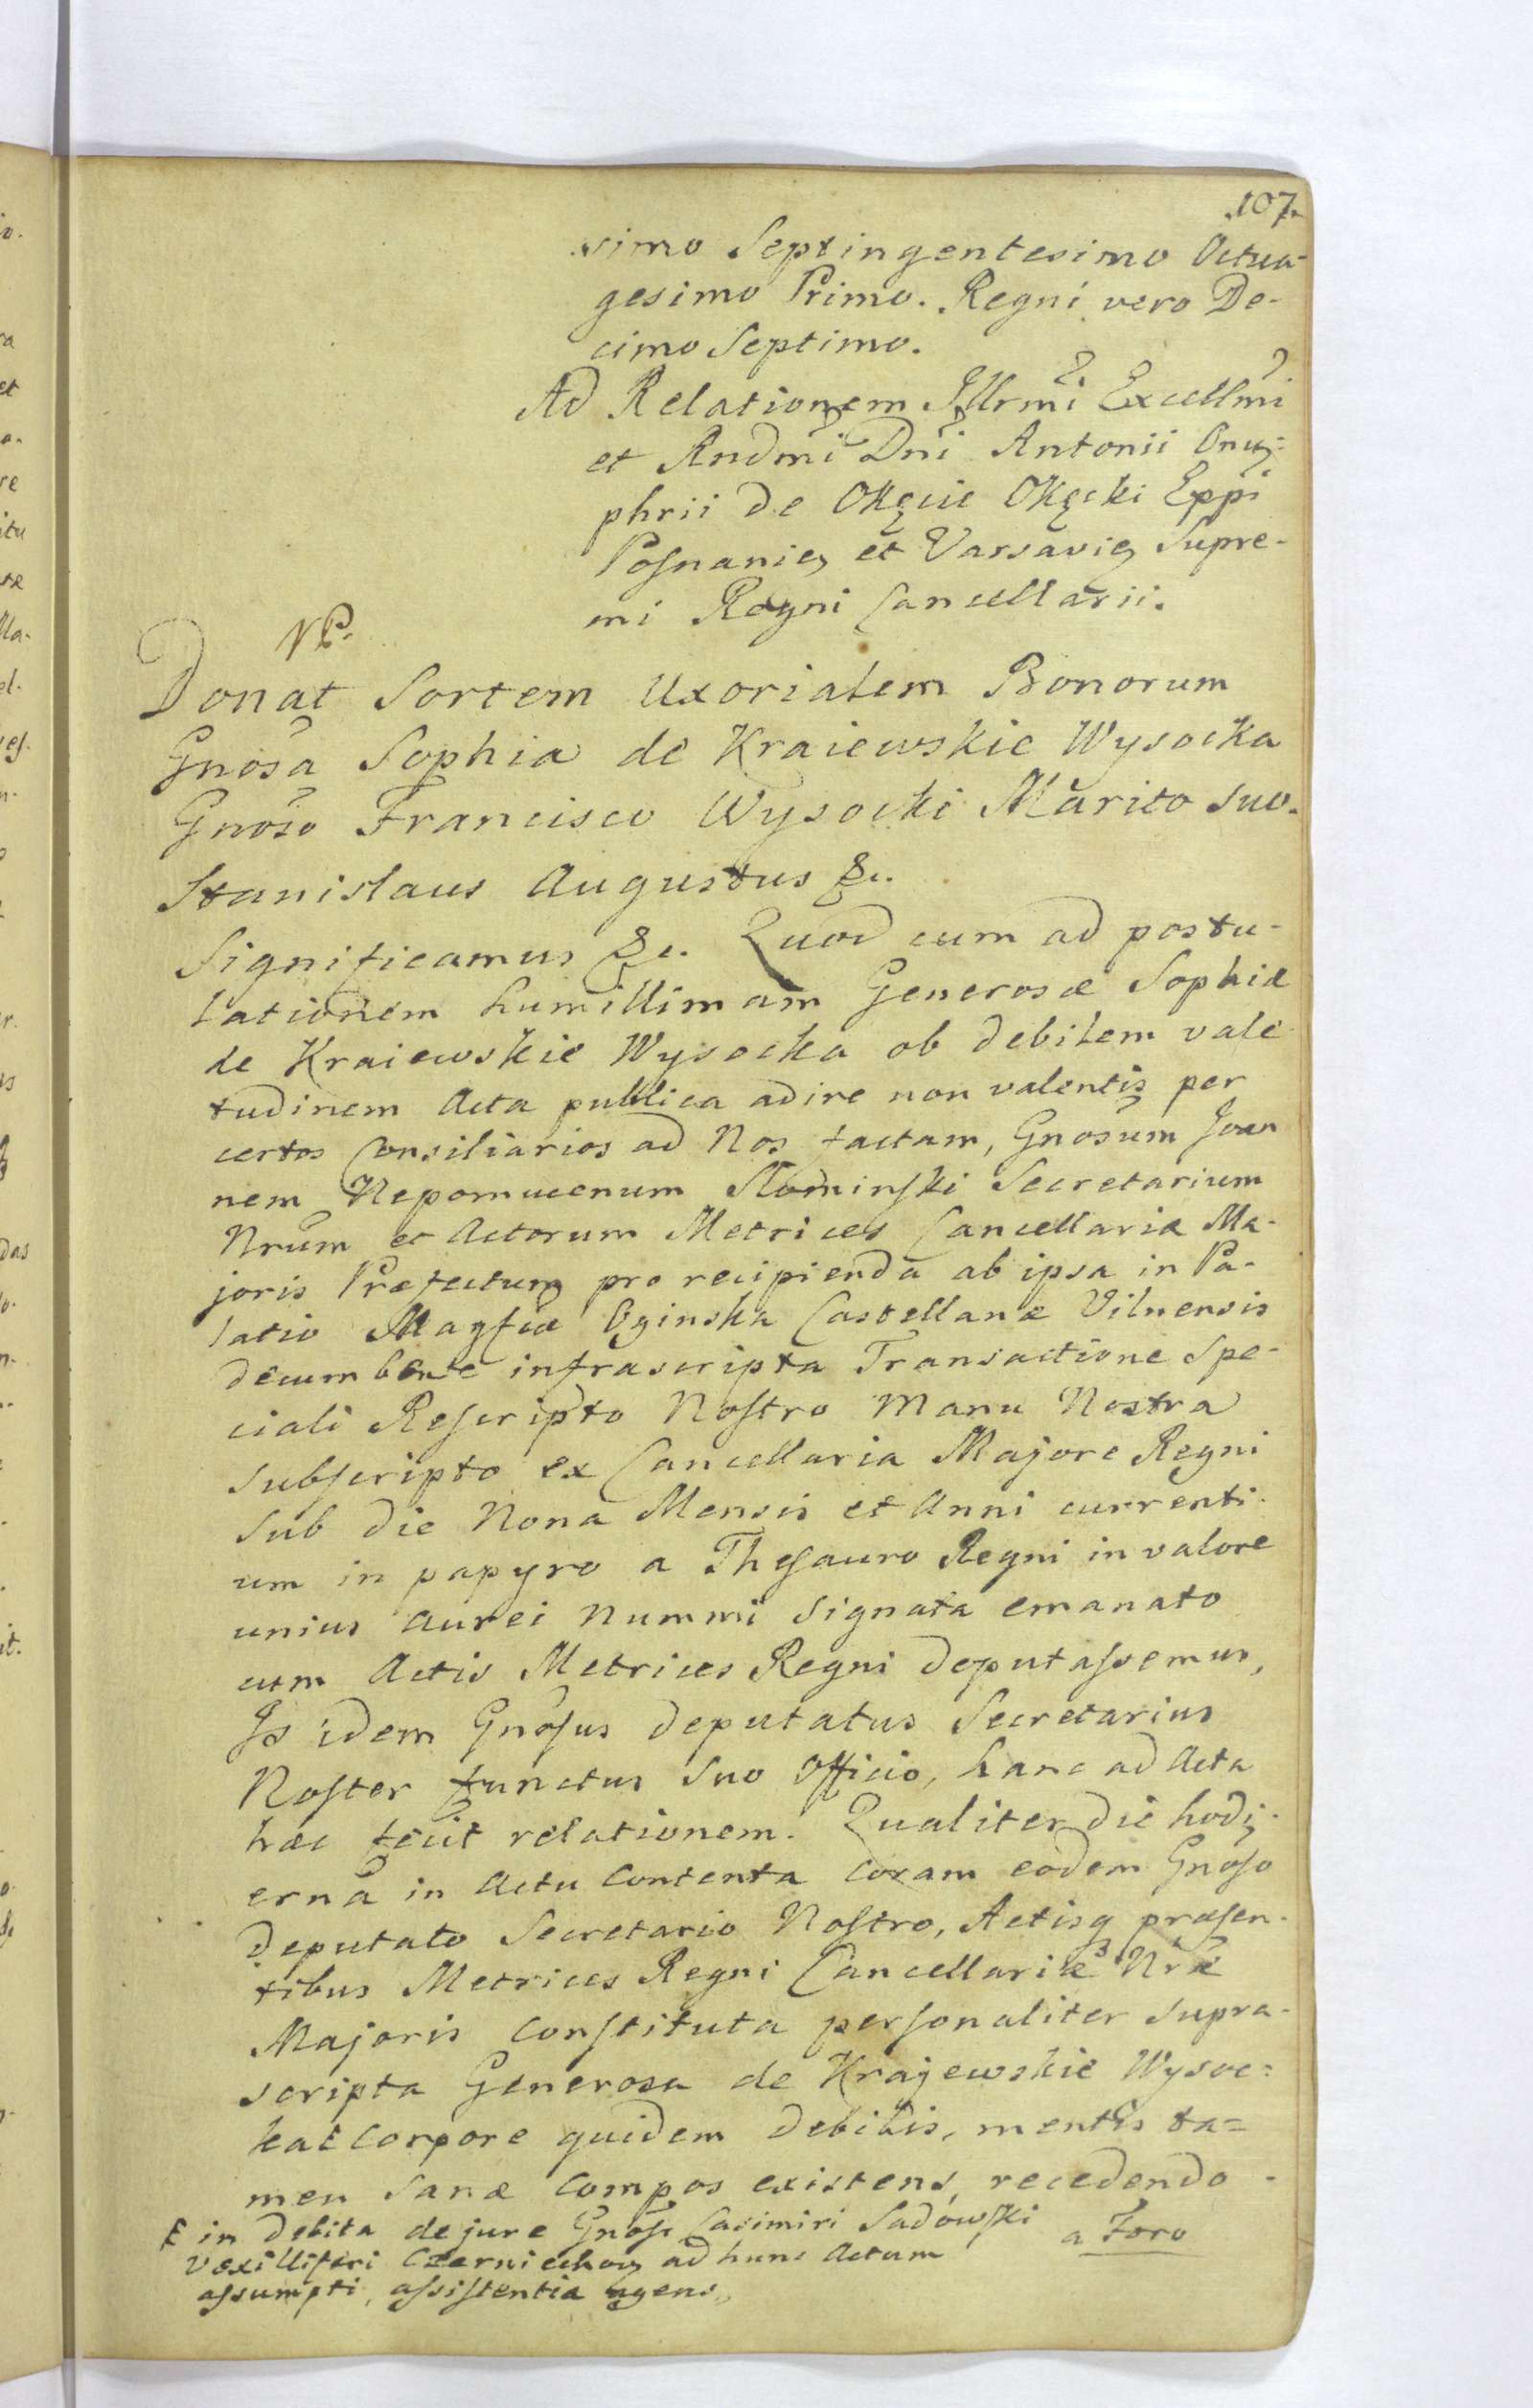 107.
simo Septingentesimo Octua-
gesimo Primo. Regni vero De-
cimo Septimo.
Ad Relationem Illrmi Excellmi
et Rndmi Dni Antonii Onu-
phrii de Okęcie Okęcki Eppi
Posnanię et Varsavię Supre-
mi Regni Cancellarii.
NP.
Donat Sortem Uxorialem Bonorum
Gnosa Sophia de Kraiewskie Wysocka
Gnoso Francisco Wysocki Marito suo.
Stanislaus Augustus &c.
Significamus &c. Quod cum ad postu-
lationem humillimam Generosæ Sophiæ
de Kraiewskie Wysocka ob debilem vale-
tudinem Acta publica adire non valentis per
certos Consiliarios ad Nos factam, Gnosum Joan
nem Nepomucenum Słominski Secretarium
Nrum et Actorum Metrices Cancellariæ Ma-
joris Præfectum pro recipienda ab ipsa in Pa-
latio Magfcæ Oginska Castellanæ Vilnensis
decumbente infrascripta Transactione Spe-
ciali Rescripto Nostro Manu Nostra
subscripto ex Cancellaria Majore Regni
sub die Nona Mensis et Anni currenti-
um in papyro a Thesauro Regni in valore
unius Aurei Nummi Signata emanato
cum Actis Metrices Regni deputassemus,
Is idem Gnosus deputatus Secretarius
Noster functus suo Officio, hanc ad Acta
hæc fecit relationem. Qualiter die hodi-
erna in Actu Contenta Coram eodem Gnoso
deputato Secretario Nostro, Actisq præsen-
tibus Metrices Regni Cancellariæ Nræ
Majoris Constituta personaliter supra-
scripta Generosa de Krajewskie Wysoc=
ka Corpore quidem debilis, mentis ta=
men Sanæ Compos existens, recedendo
in debita de jure Gnosi Casimiri Sadowski
Vexilliferi Czerniechov ad hunc Actum
assumpti, assistentia agens
a Foro